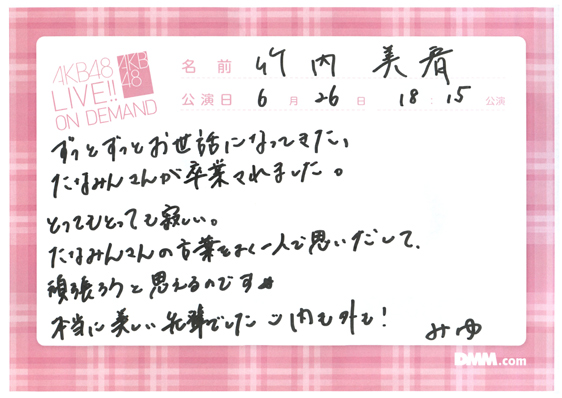 AKB48
LIVE!!
ON DEMAND
AKB
48
名前 竹内 美宥
公演日 6月26日 18:15公演
ずっとずっとお世話になってきた、
たなみんさんが卒業されました。
とってもとっても寂しい。
たなみんさんの言葉をよく一人で思いだして、
頑張ろうと思えるのです★
本当に美しい先輩でした 内も外も!
みゆ
DMM.com